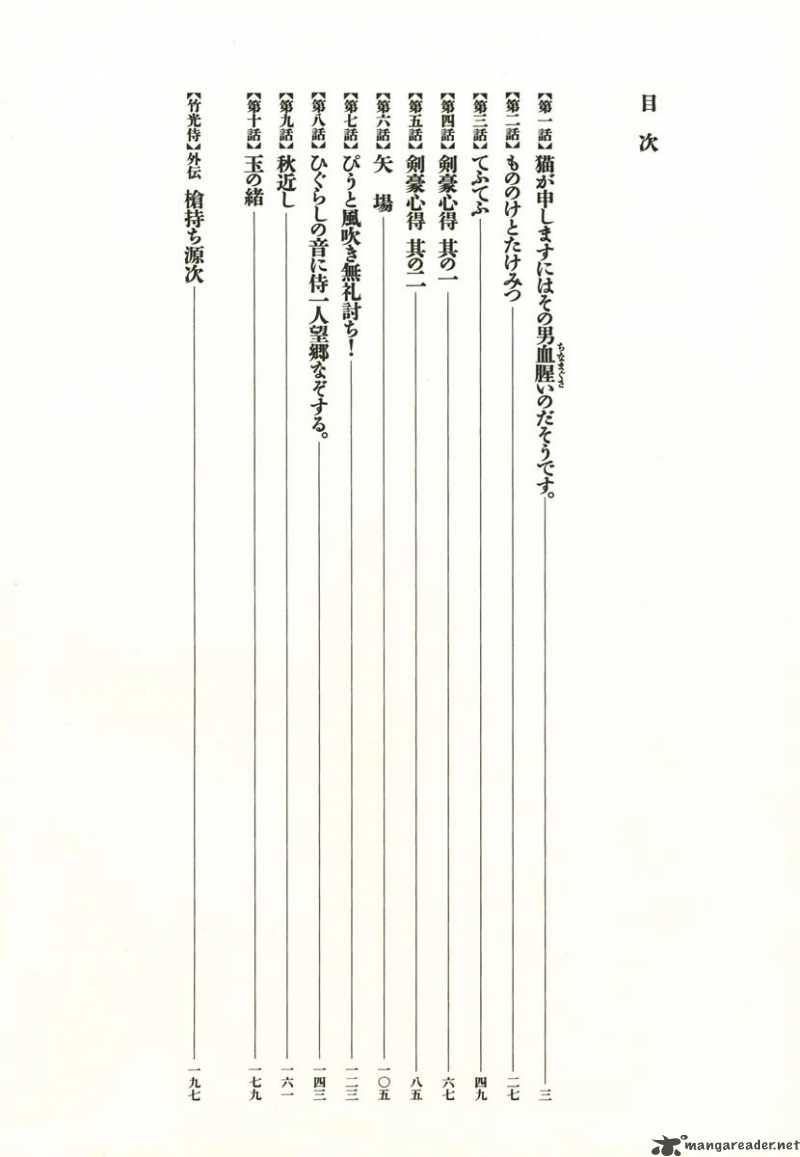 目次
【第一話】猫が申しますにはその男血腥いのだそうです。 三
ちなまぐさ
【第二話】もののけとたけみつ 二七
【第三話】てふてふ 四九
【第四話】剣豪心得 其の一 六七
【第五話】剣豪心得 其の二 八五
【第六話】矢場 一〇五
【第七話】ぴうと風吹き無礼討ち! 一二三
【第八話】ひぐらしの音に侍一人望郷なぞする。 一四三
【第九話】秋近し 一六一
【第十話】玉の緒 一七九
【竹光侍】外伝 槍持ち源次 一九七
mangareader.net